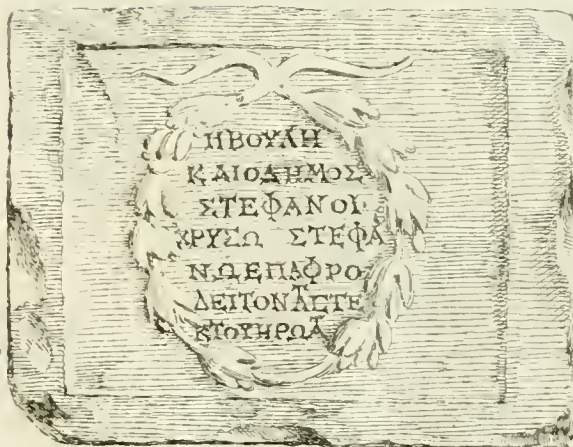 ΗΒΟΥΛΗ
ΚΑΙΟΔΗΜΟΣ
ΣΤΕΦΑΝΟΙ
ΧΡΥΣΩ ΣΤΕΦΑ
ΝΩΕΠΑΦΡΟ
ΔΕΙΤΟΝΛΣΤΕ
ΚΤΟΥΗΡΩΑ